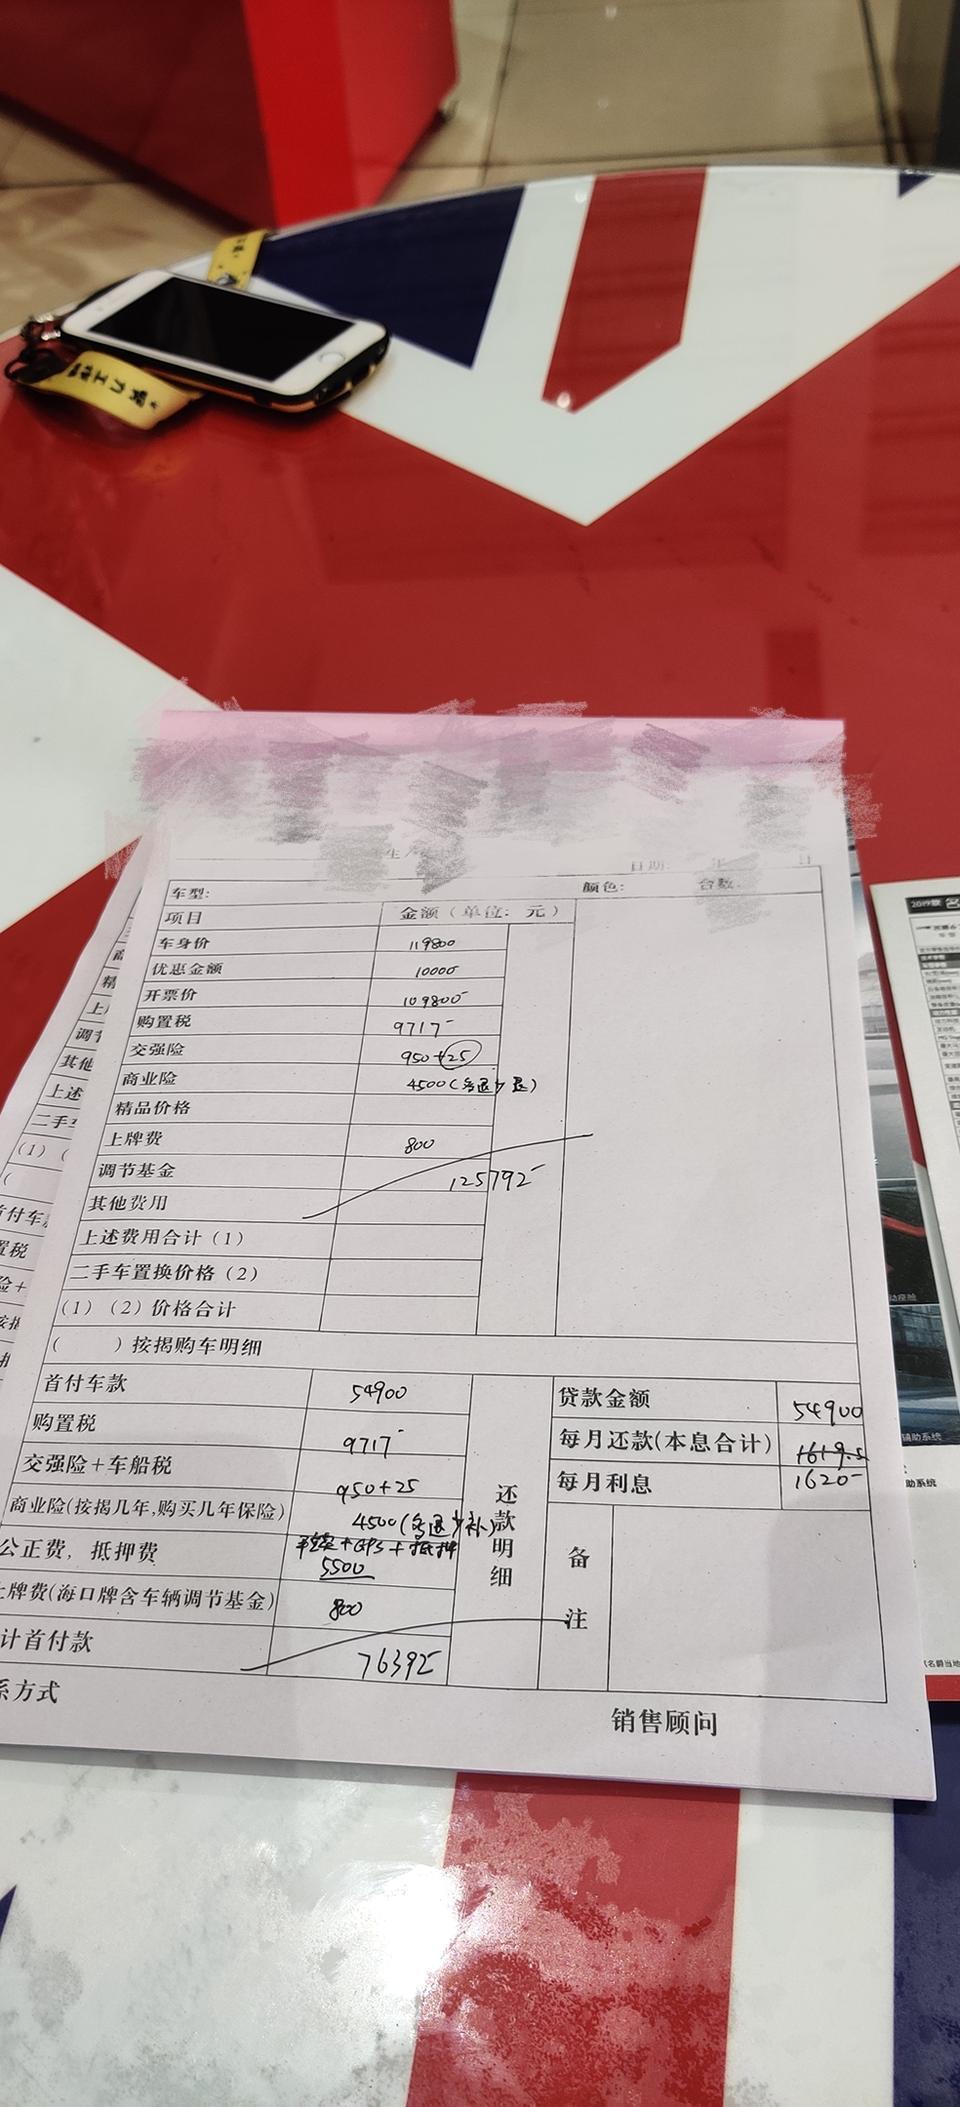 日期: 年 日
车型: 颜色: 台数:
项目 金额（单位：元）
车身价 119800
优惠金额 10000
开票价 109800
购置税 9717
交强险 950+25
商业险 4500(多退少退)
精品价格
上牌费 800
调节基金 125792
其他费用
上述费用合计（1）
二手车置换价格（2）
（1）（2）价格合计
（ ）按揭购车明细
首付车款 54900 贷款金额 54900
购置税 9717 每月还款(本息合计) 1619.5
交强险＋车船税 950+25 每月利息 1620
商业险(按揭几年,购买几年保险) 4500(多退少补)
公正费，抵押费 +GPS+抵押 5500
上牌费(海口牌含车辆调节基金) 800
计首付款 76392
还款明细
备注
系方式
销售顾问
2019款 名
辅助系统
助系统